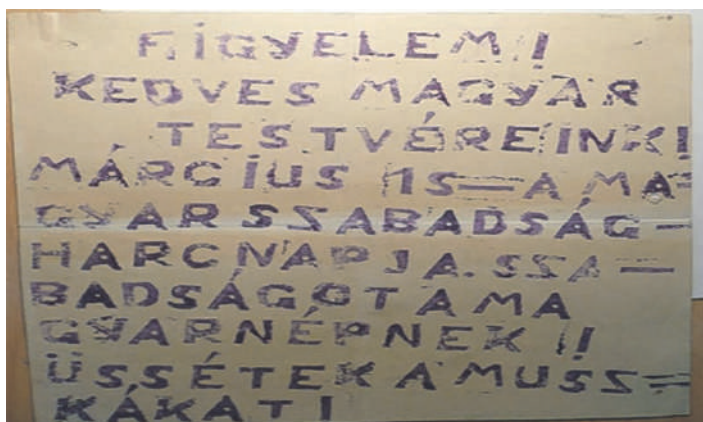 FIGYELEM!
KEDVES MAGYAR
TESTVÉREINK!
MÁRCIUS 15=A MA=
GYARSSZABADSÁG-
HARCNAPJA. SSA=
BADSÁGOT A MA
GYARNÉPNEK!!
ÜSSÉTEK A MUSSZ=
KÁKAT!